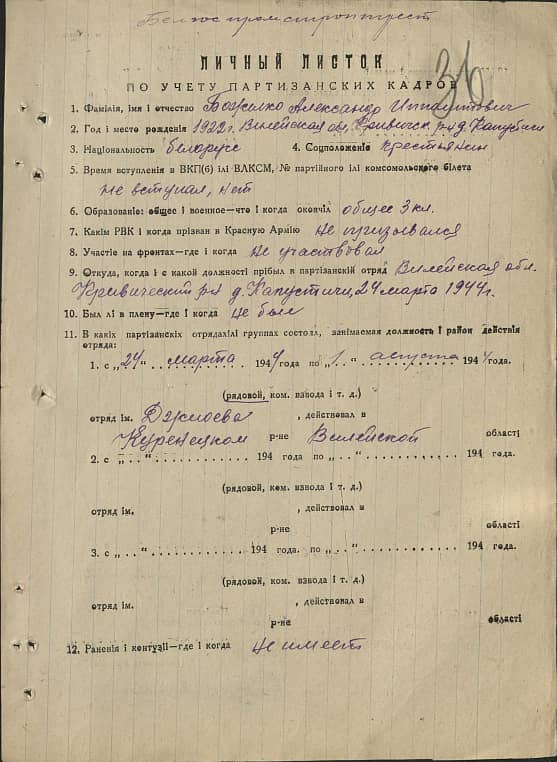 Белгоспромстройтрест
36
ЛИЧНЫЙ ЛИСТОК
ПО УЧЕТУ ПАРТИЗАНСКИХ КАДРОВ
1. Фамілія, імя і отчество Божилко Александр Ипполитович
2. Год і место рождения 1922 г. Вилейская обл. Кривичск. р-н д. Капустичи
3. Національность белорусс 4. Соцположеніе крестьянин
5. Время вступления в ВКП(б) ілі ВЛКСМ, № партійного ілі комсомольского білета
не вступал, нет
6. Образованіе: общее і военное—что і когда окончіл общее 3 кл.
7. Какім РВК і когда прізван в Красную Армію не призывался
8. Участіе на фронтах—где і когда не участвовал
9. Откуда, когда і с какой должності прібыл в партізанскій отряд Вилейская обл.
Кривический р-н д. Капустичи, 24 марта 1944 г.
10. Был лі в плену—где і когда не был
11. В какіх партізанскіх отрядах ілі группах состоял, занімаемая должность і район действія
отряда:
1. с „24“ марта 1944 года по „1“ августа 1944 года.
(рядовой, ком. взвода і т. д.)
отряд ім. , действовал в
Куренецком р-не Вилейской області
2. с „ . . “ 194 года по „ . . “ 194 года.
(рядовой, ком. взвода і т. д.)
отряд ім. , действовал в
р-не області
3. с „ . . “ 194 года. по „ . . “ 194 года.
(рядовой, ком. взвода і т. д.)
отряд ім. , действовал в
р-не області
12. Раненія і контузіі—где і когда не имеет